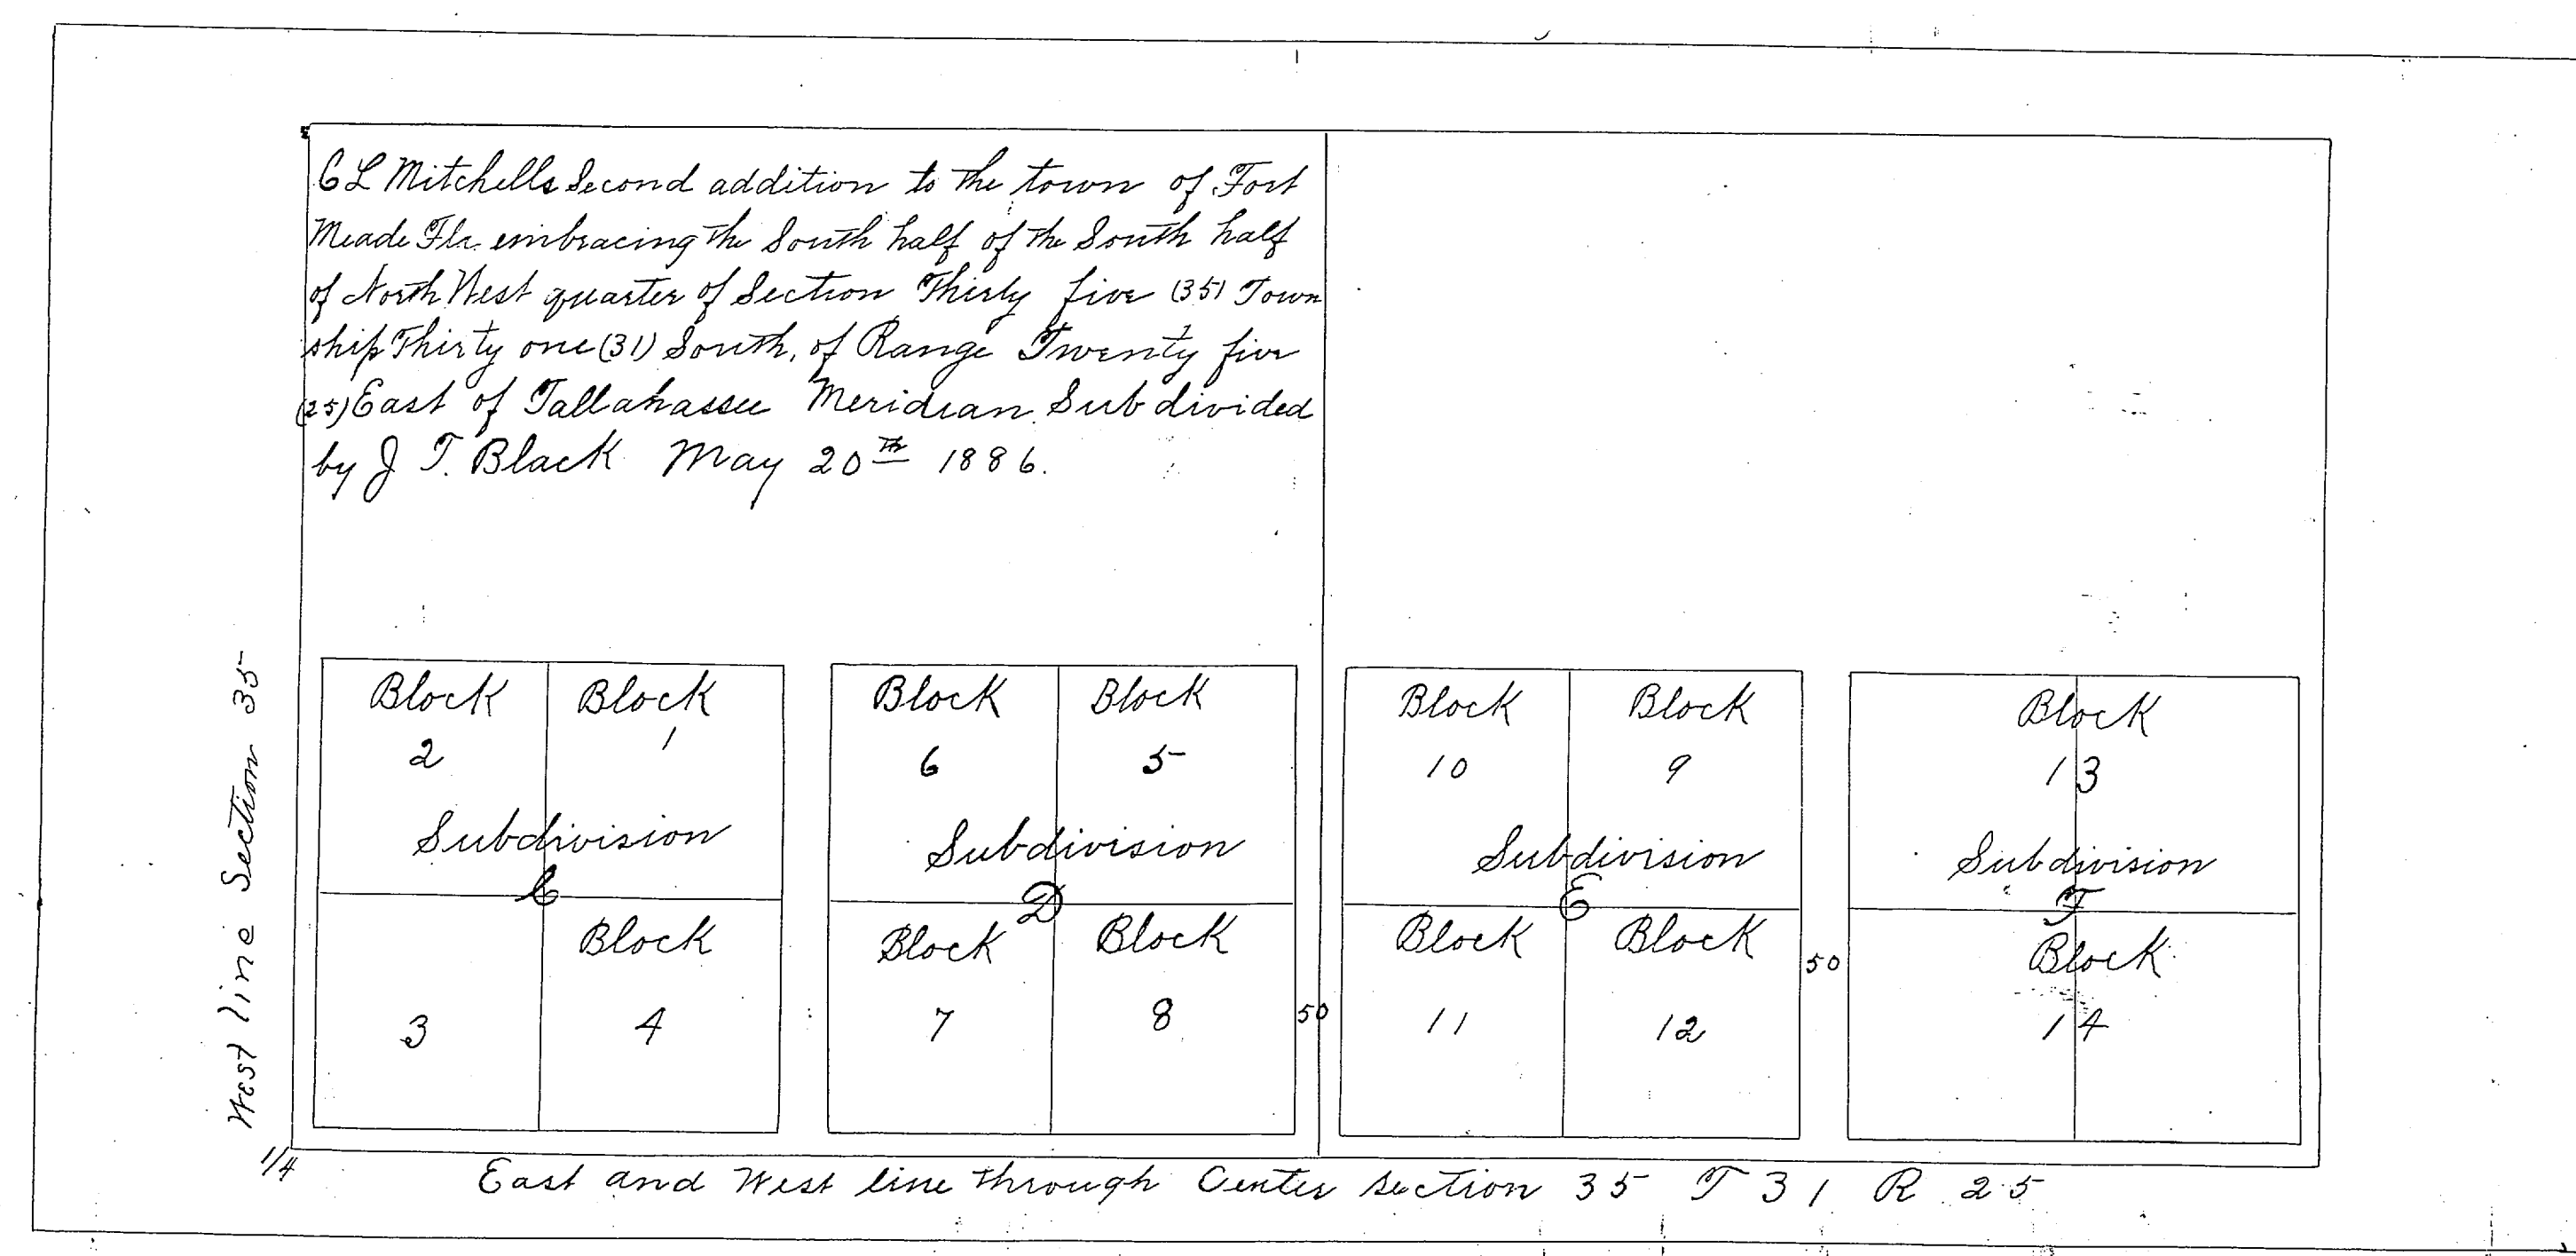 C L Mitchells Second addition to the town of Fort
Meade Fla. embracing the South half of the South half
of North West quarter of Section Thirty five (35) Town
ship Thirty one (31) South, of Range Twenty five
(25) East of Tallahassee Meridian. Subdivided
by J T. Black May 20th 1886.
West line Section 35
Block Block
2 1
Subdivision
C
Block
3 4
Block Block
6 5
Subdivision
D
Block Block
7 8
50
Block Block
10 9
Subdivision
E
Block Block
11 12
50
Block
13
Subdivision
F
Block
14
1/4
East and West line through Center section 35 T 31 R 25